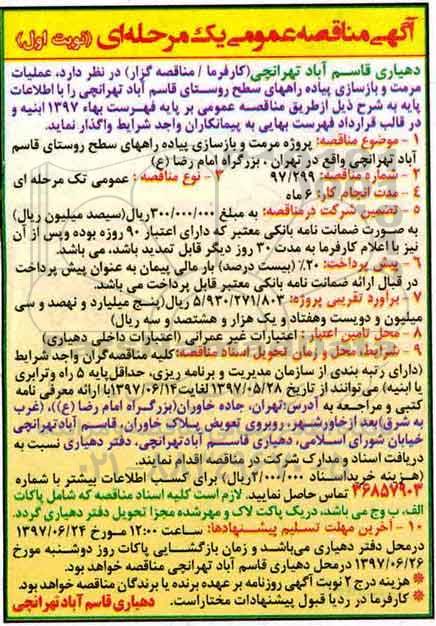 آگهی مناقصه عمومی یک مرحله‌ای (نوبت اول)
دهیاری قاسم آباد تهرانچی(کارفرما / مناقصه گزار) در نظر دارد، عملیات
مرمت و بازسازی پیاده راههای سطح روستای قاسم آباد تهرانچی را با اطلاعات
پایه به شرح ذیل ازطریق مناقصه عمومی بر پایه فهرست بهاء ۱۳۹۷ ابنیه و
در قالب قرارداد فهرست بهایی به پیمانکاران واجد شرایط واگذار نماید.
۱ - موضوع مناقصه: پروژه مرمت و بازسازی پیاده راههای سطح روستای قاسم
آباد تهرانچی واقع در تهران ، بزرگراه امام رضا (ع)
۲ - شماره مناقصه: ۹۷/۲۹۹ ۳ - نوع مناقصه : عمومی تک مرحله ای
۴ - مدت انجام کار: ۶ ماه
۵ - تضمین شرکت درمناقصه: به مبلغ ۳۰۰/۰۰۰/۰۰۰ریال(سیصد میلیون ریال)
به صورت ضمانت نامه بانکی معتبر که دارای اعتبار ۹۰ روزه بوده وپس از آن
نیز با اعلام کارفرما به مدت ۳۰ روز دیگر قابل تمدید باشد، می باشد.
۶ - پیش پرداخت: ۲۰٪ (بیست درصد) بار مالی پیمان به عنوان پیش پرداخت
در قبال ارائه ضمانت نامه بانکی معتبر قابل پرداخت می باشد.
۷ - برآورد تقریبی پروژه: ۵/۹۳۰/۲۷۱/۸۰۳ ریال(پنج میلیارد و نهصد و سی
میلیون و دویست وهفتاد و یک هزار و هشتصد و سه ریال)
۸ - محل تامین اعتبار : اعتبارات غیر عمرانی (اعتبارات داخلی دهیاری)
۹ - شرایط، محل و زمان تحویل اسناد مناقصه:کلیه مناقصه‌گران واجد شرایط
(دارای رتبه بندی از سازمان مدیریت و برنامه ریزی، حداقل‌پایه ۵ راه وترابری
یا ابنیه) می‌توانند از تاریخ ۱۳۹۷/۰۵/۲۸ لغایت۱۳۹۷/۰۶/۱۴با ارائه معرفی نامه
کتبی و مراجعه به آدرس:تهران، جاده خاوران(بزرگراه امام رضا (ع))، (غرب
به شرق)بعدازخاورشهر، روبروی تعویض پلاک خاوران، قاسم آباد تهرانچی
خیابان شورای اسلامی، دهیاری قاسم‌آباد تهرانچی، دفتر دهیاری نسبت به
دریافت اسناد و مدارک شرکت در مناقصه اقدام نمایند.
(هزینه خرید اسناد ۲/۰۰۰/۰۰۰ریال) برای کسب اطلاعات بیشتر با شماره
۳۶۸۵۷۹۰۳ تماس حاصل نمایید. لازم است کلیه اسناد مناقصه که شامل پاکات
الف، ب وج می باشد، دریک پاکت لاک و مهرشده مجزا تحویل دفتر دهیاری گردد.
۱۰ - آخرین مهلت تسلیم پیشنهادها: ساعت ۱۲:۰۰ مورخ ۱۳۹۷/۰۶/۲۴
درمحل دفتر دهیاری می‌باشد و زمان بازگشایی پاکات روز دوشنبه مورخ
۱۳۹۷/۰۶/۲۶ درمحل دهیاری قاسم آباد تهرانچی مناقصه خواهد بود.
* هزینه درج ۲ نوبت آگهی روزنامه بر عهده برنده یا برندگان مناقصه خواهد بود.
* کارفرما در ردیا قبول پیشنهادات مختاراست. دهیاری قاسم آباد تهرانچی